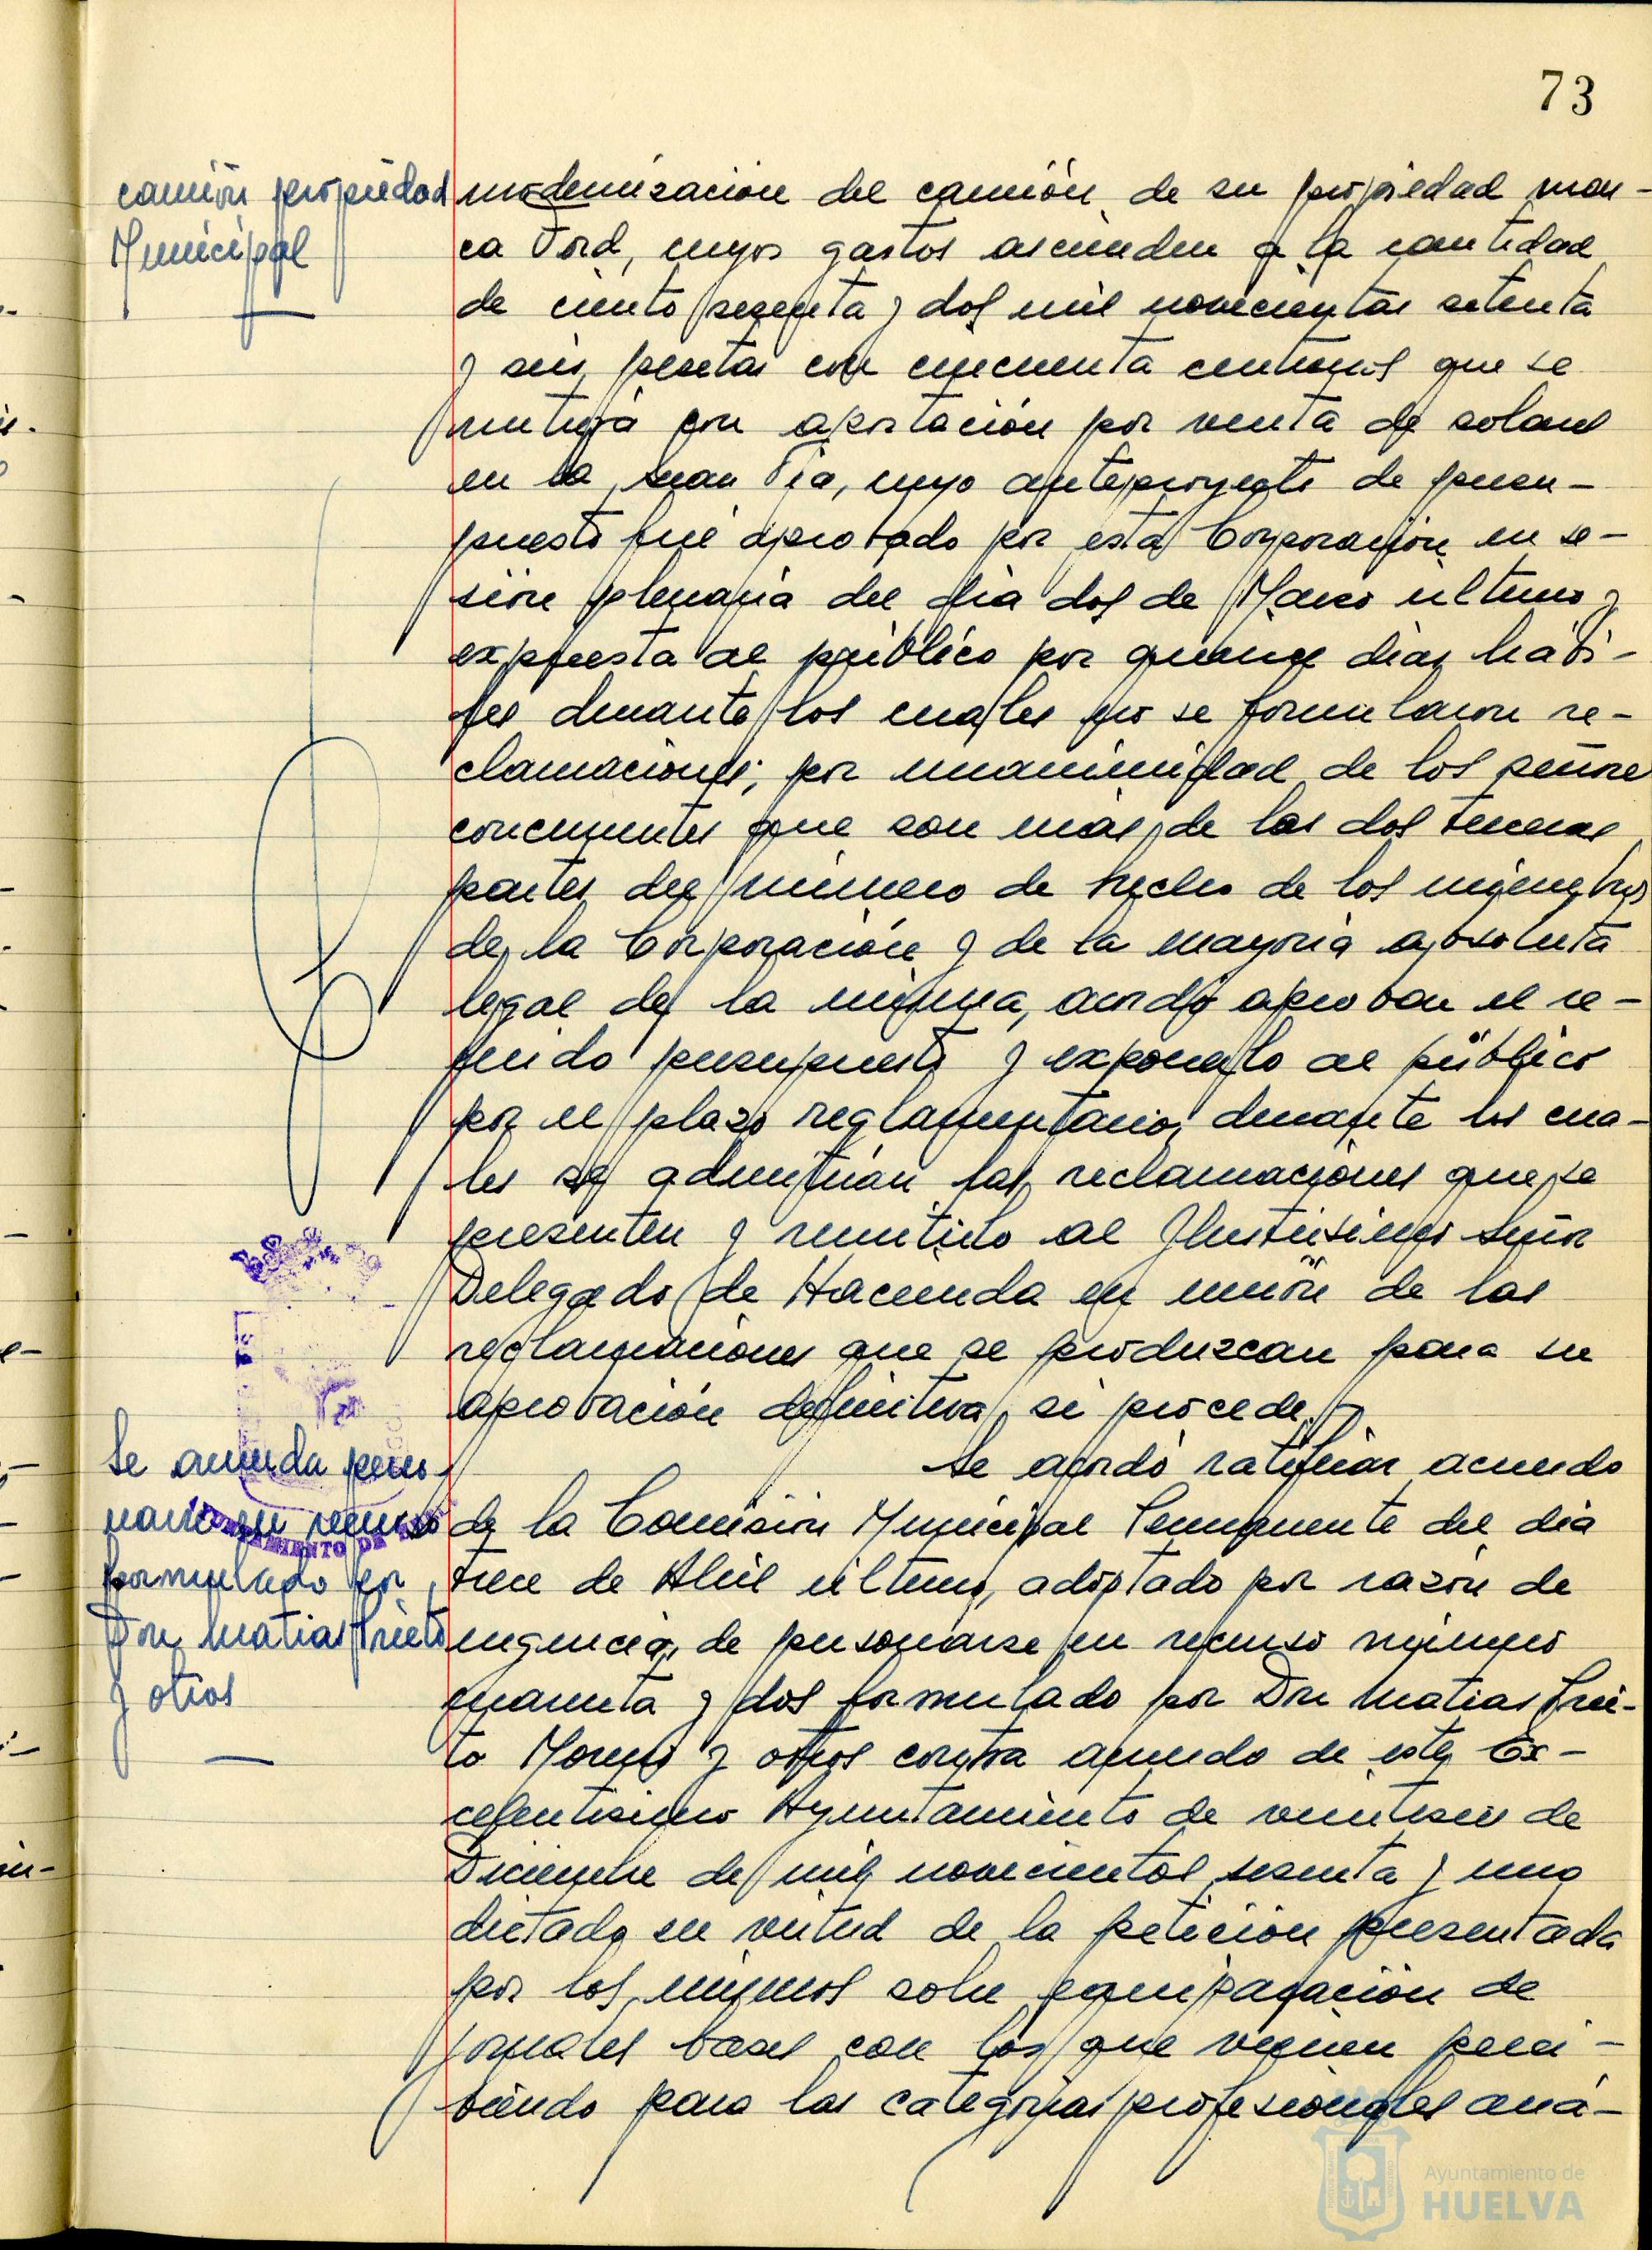 73
camión propiedad
Municipal
modernización del camión de su propiedad mar-
ca Ford, cuyos gastos ascienden a la cantidad
de ciento sesenta y dos mil novecientas setenta
y seis pesetas con cincuenta centimos que se
nutrirá con aportación por venta de solares
en la Gran Via, cuyo anteproyecto de presu-
puesto fué aprobado por esta Corporación en se-
sión plenaria del dia dos de Marzo último y
expuesta al público por quince dias hábi-
les durante los cuales no se formularon re-
clamaciones; por unanimidad de los señores
concurrentes que son más de las dos terceras
partes del número de hecho de los miembros
de la Corporación y de la mayoria absoluta
legal de la misma, acordó aprobar el re-
ferido presupuesto y exponerlo al público
por el plazo reglamentario, durante los cua-
les se admitirán las reclamaciones que se
presenten y remitirlo al Ilustrisimo Señor
Delegado de Hacienda en unión de las
reclamaciones que se produzcan para su
aprobación definitiva, si procede.
Se acuerda perso-
narse en recurso
formulado por
Don Matias Prieto
y otros
Se acordó ratificar acuerdo
de la Comisión Municipal Permanente del dia
trece de Abril último, adoptado por razón de
urgencia, de personarse en recurso número
cuarenta y dos formulado por Don Matias Prie-
to Moreno y otros contra acuerdo de este Ex-
celentisimo Ayuntamiento de veintiseis de
Diciembre de mil novecientos sesenta y uno
dictado en virtud de la petición presentada
por los mismos sobre equiparación de
jornales bases con los que vienen perci-
biendo para las categorias profesionales aná-
AYUNTAMIENTO DE
Ayuntamiento de
HUELVA